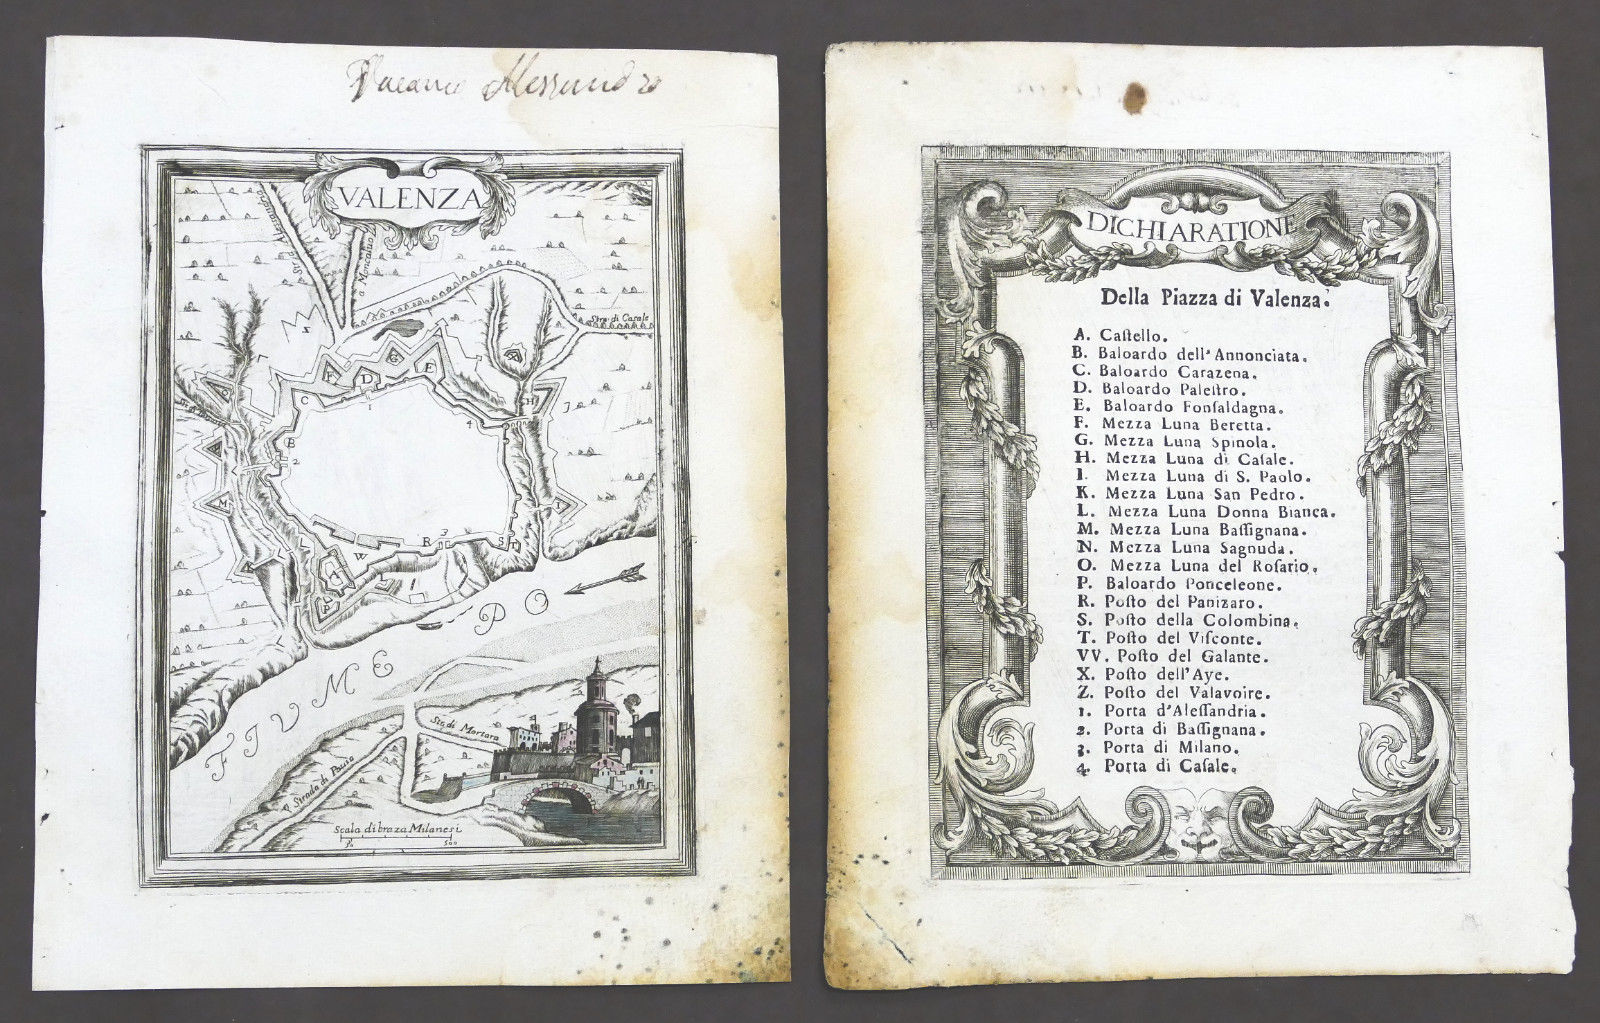 Alessandro
VALENZA
Str. di Casale
FIVME PO
Str. di Mortara
Strada di Pauia
Scala di braza Milanesi
500
DICHIARATIONE
Della Piazza di Valenza.
A. Caſtello.
B. Baloardo dell'Annonciata.
C. Baloardo Carazena.
D. Baloardo Paleſtro.
E. Baloardo Fonſaldagna.
F. Mezza Luna Beretta.
G. Mezza Luna Spinola.
H. Mezza Luna di Caſale.
I. Mezza Luna di S. Paolo.
K. Mezza Luna San Pedro.
L. Mezza Luna Donna Bianca.
M. Mezza Luna Baſſignana.
N. Mezza Luna Sagnuda.
O. Mezza Luna del Roſario.
P. Baloardo Ponceleone.
R. Poſto del Panizaro.
S. Poſto della Colombina.
T. Poſto del Viſconte.
VV. Poſto del Galante.
X. Poſto dell'Aye.
Z. Poſto del Valavoire.
1. Porta d'Aleſſandria.
2. Porta di Baſſignana.
3. Porta di Milano.
4. Porta di Caſale.